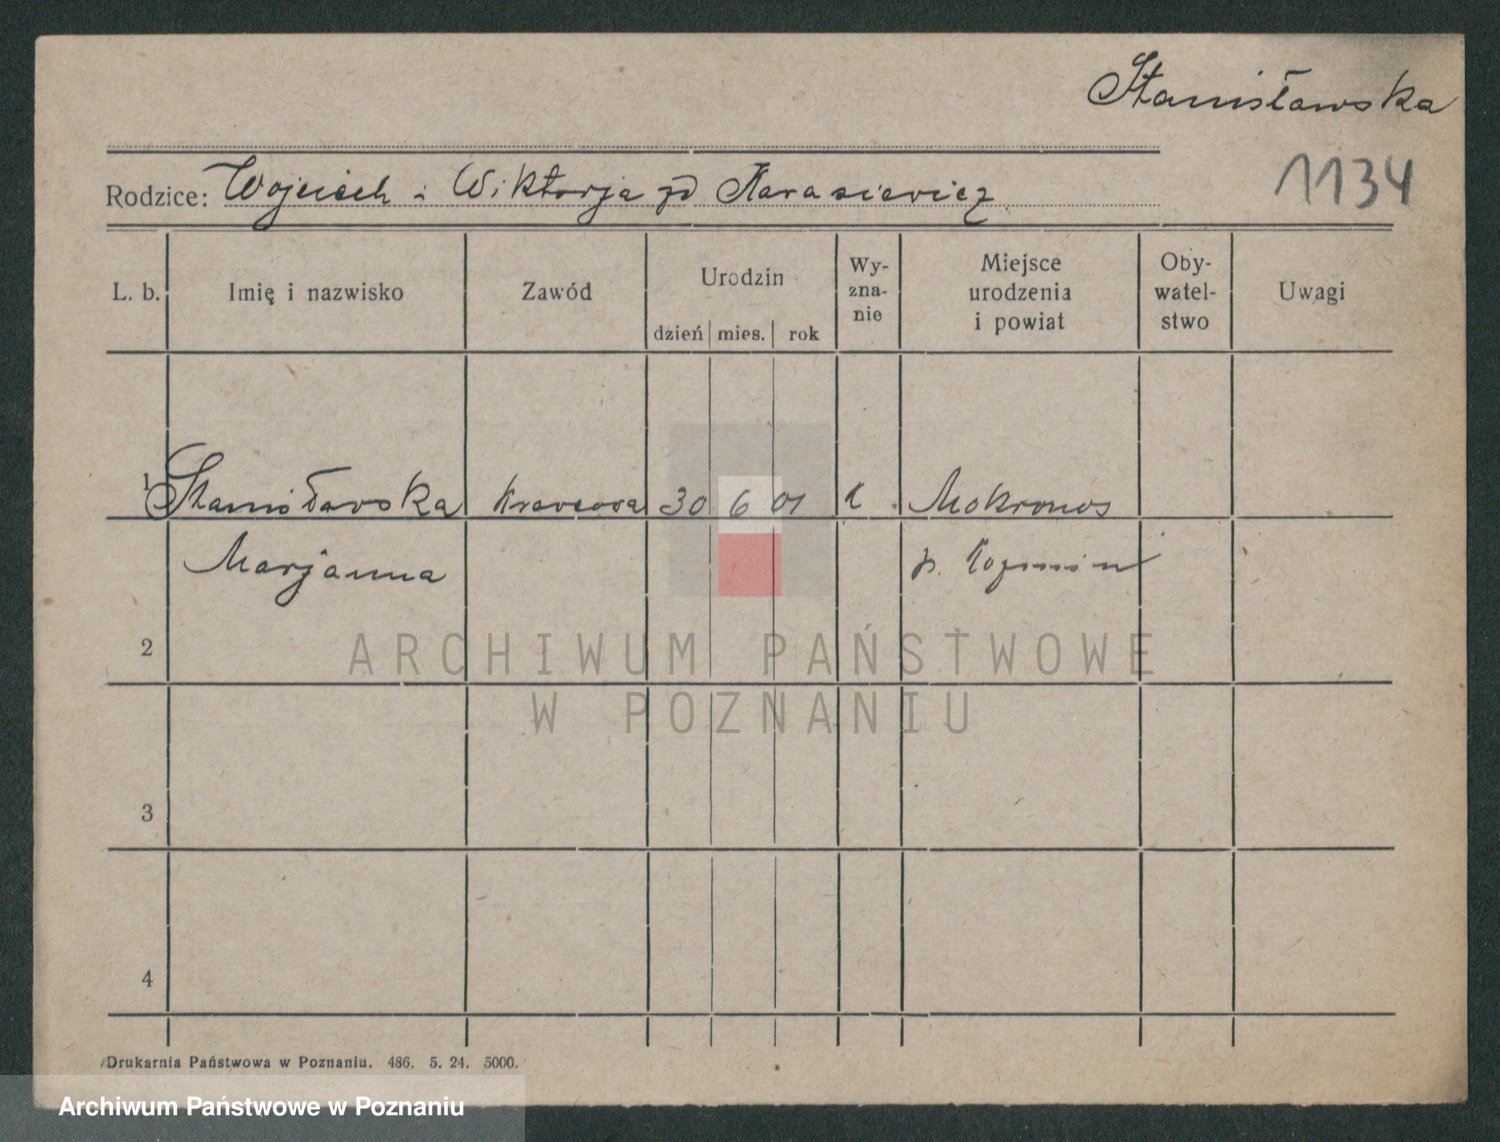 Stanisławska
1134
Rodzice: Wojciech i Wiktorja zd Karasiewicz
L. b. Imię i nazwisko Zawód Urodzin dzień mies. rok Wy-zna-nie Miejsce urodzenia i powiat Oby-watel-stwo Uwagi
1 Stanisławska krawcowa 30 6 01 k Mokronos
Marjanna p. Koźmin
2
3
4
ARCHIWUM PAŃSTWOWE
W POZNANIU
Drukarnia Państwowa w Poznaniu. 486. 5. 24. 5000.
Archiwum Państwowe w Poznaniu